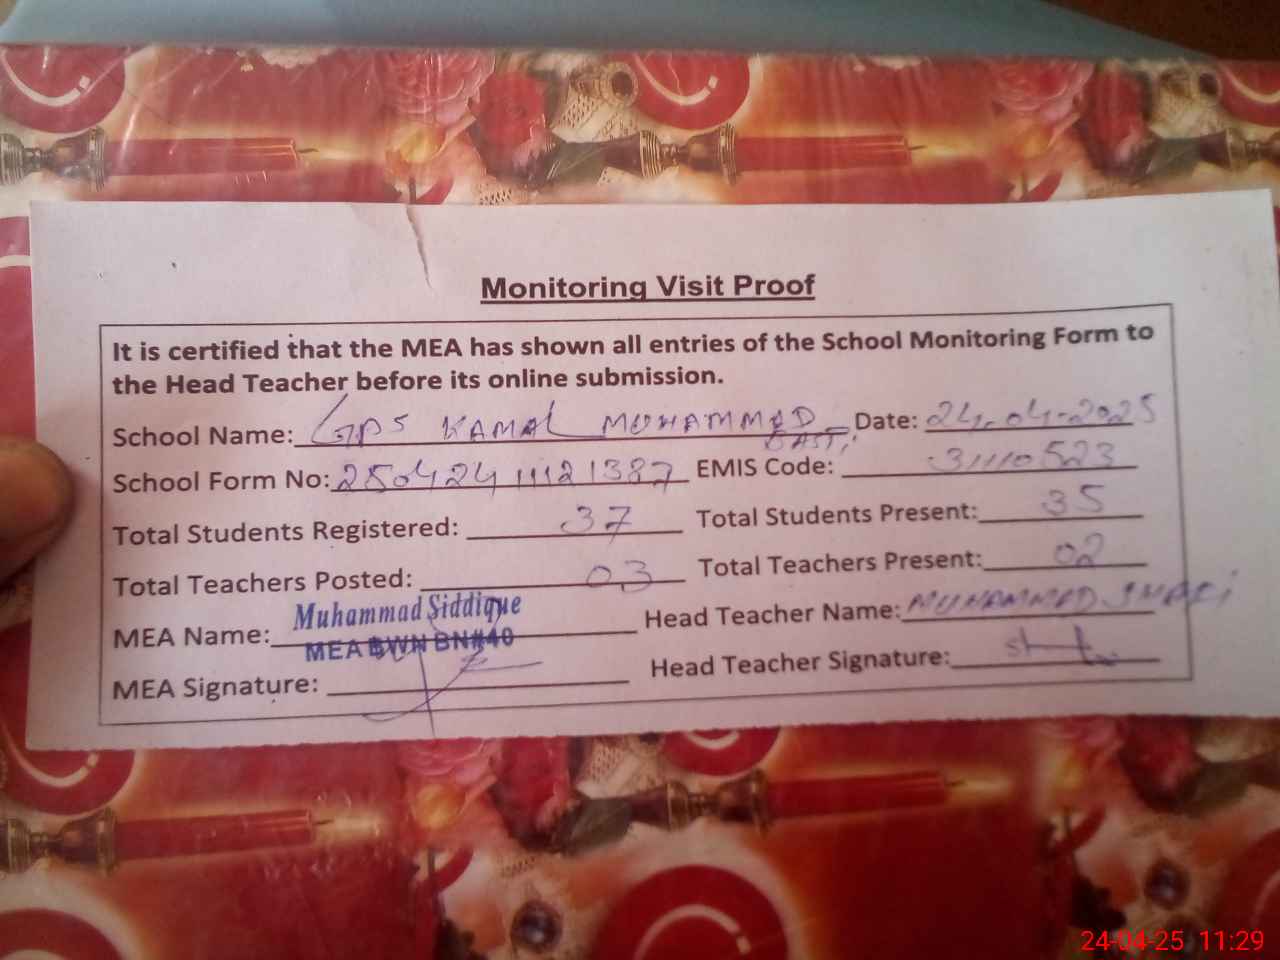 Monitoring Visit Proof
It is certified that the MEA has shown all entries of the School Monitoring Form to
the Head Teacher before its online submission.
School Name: GPS KAMAL MUHAMMAD Date: 24-04-2025
BASTI
School Form No: 25042411121387 EMIS Code: 31110523
Total Students Registered: 37 Total Students Present: 35
Total Teachers Posted: 03 Total Teachers Present: 02
MEA Name: Muhammad Siddique Head Teacher Name: MUHAMMAD
MEA BWN BN#40
MEA Signature: Head Teacher Signature:
24-04-25 11:29